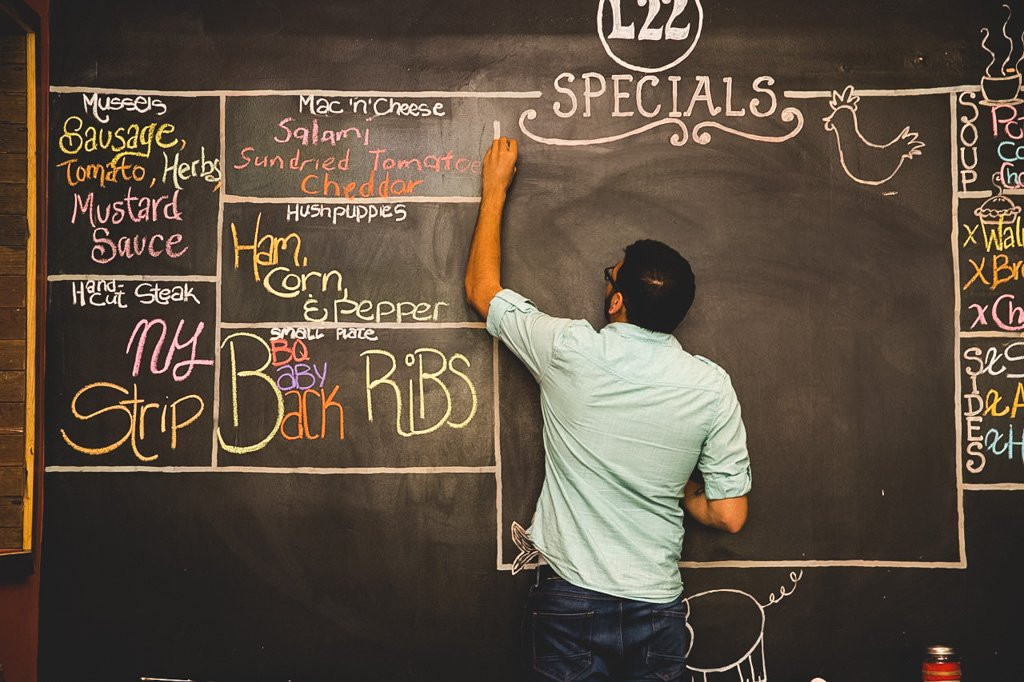 L22
SPECIALS
Mussels
Sausage,
Tomato, Herbs
Mustard
Sauce
Mac 'n' Cheese
Salami
Sundried Tomatoe
Cheddar
Hushpuppies
Ham,
Corn,
& Pepper
Hand-
Cut Steak
NY
Strip
Small Plate
BBQ
Baby
Back
RiBS
SOUP
x
x
x
SIDES
x
x
x